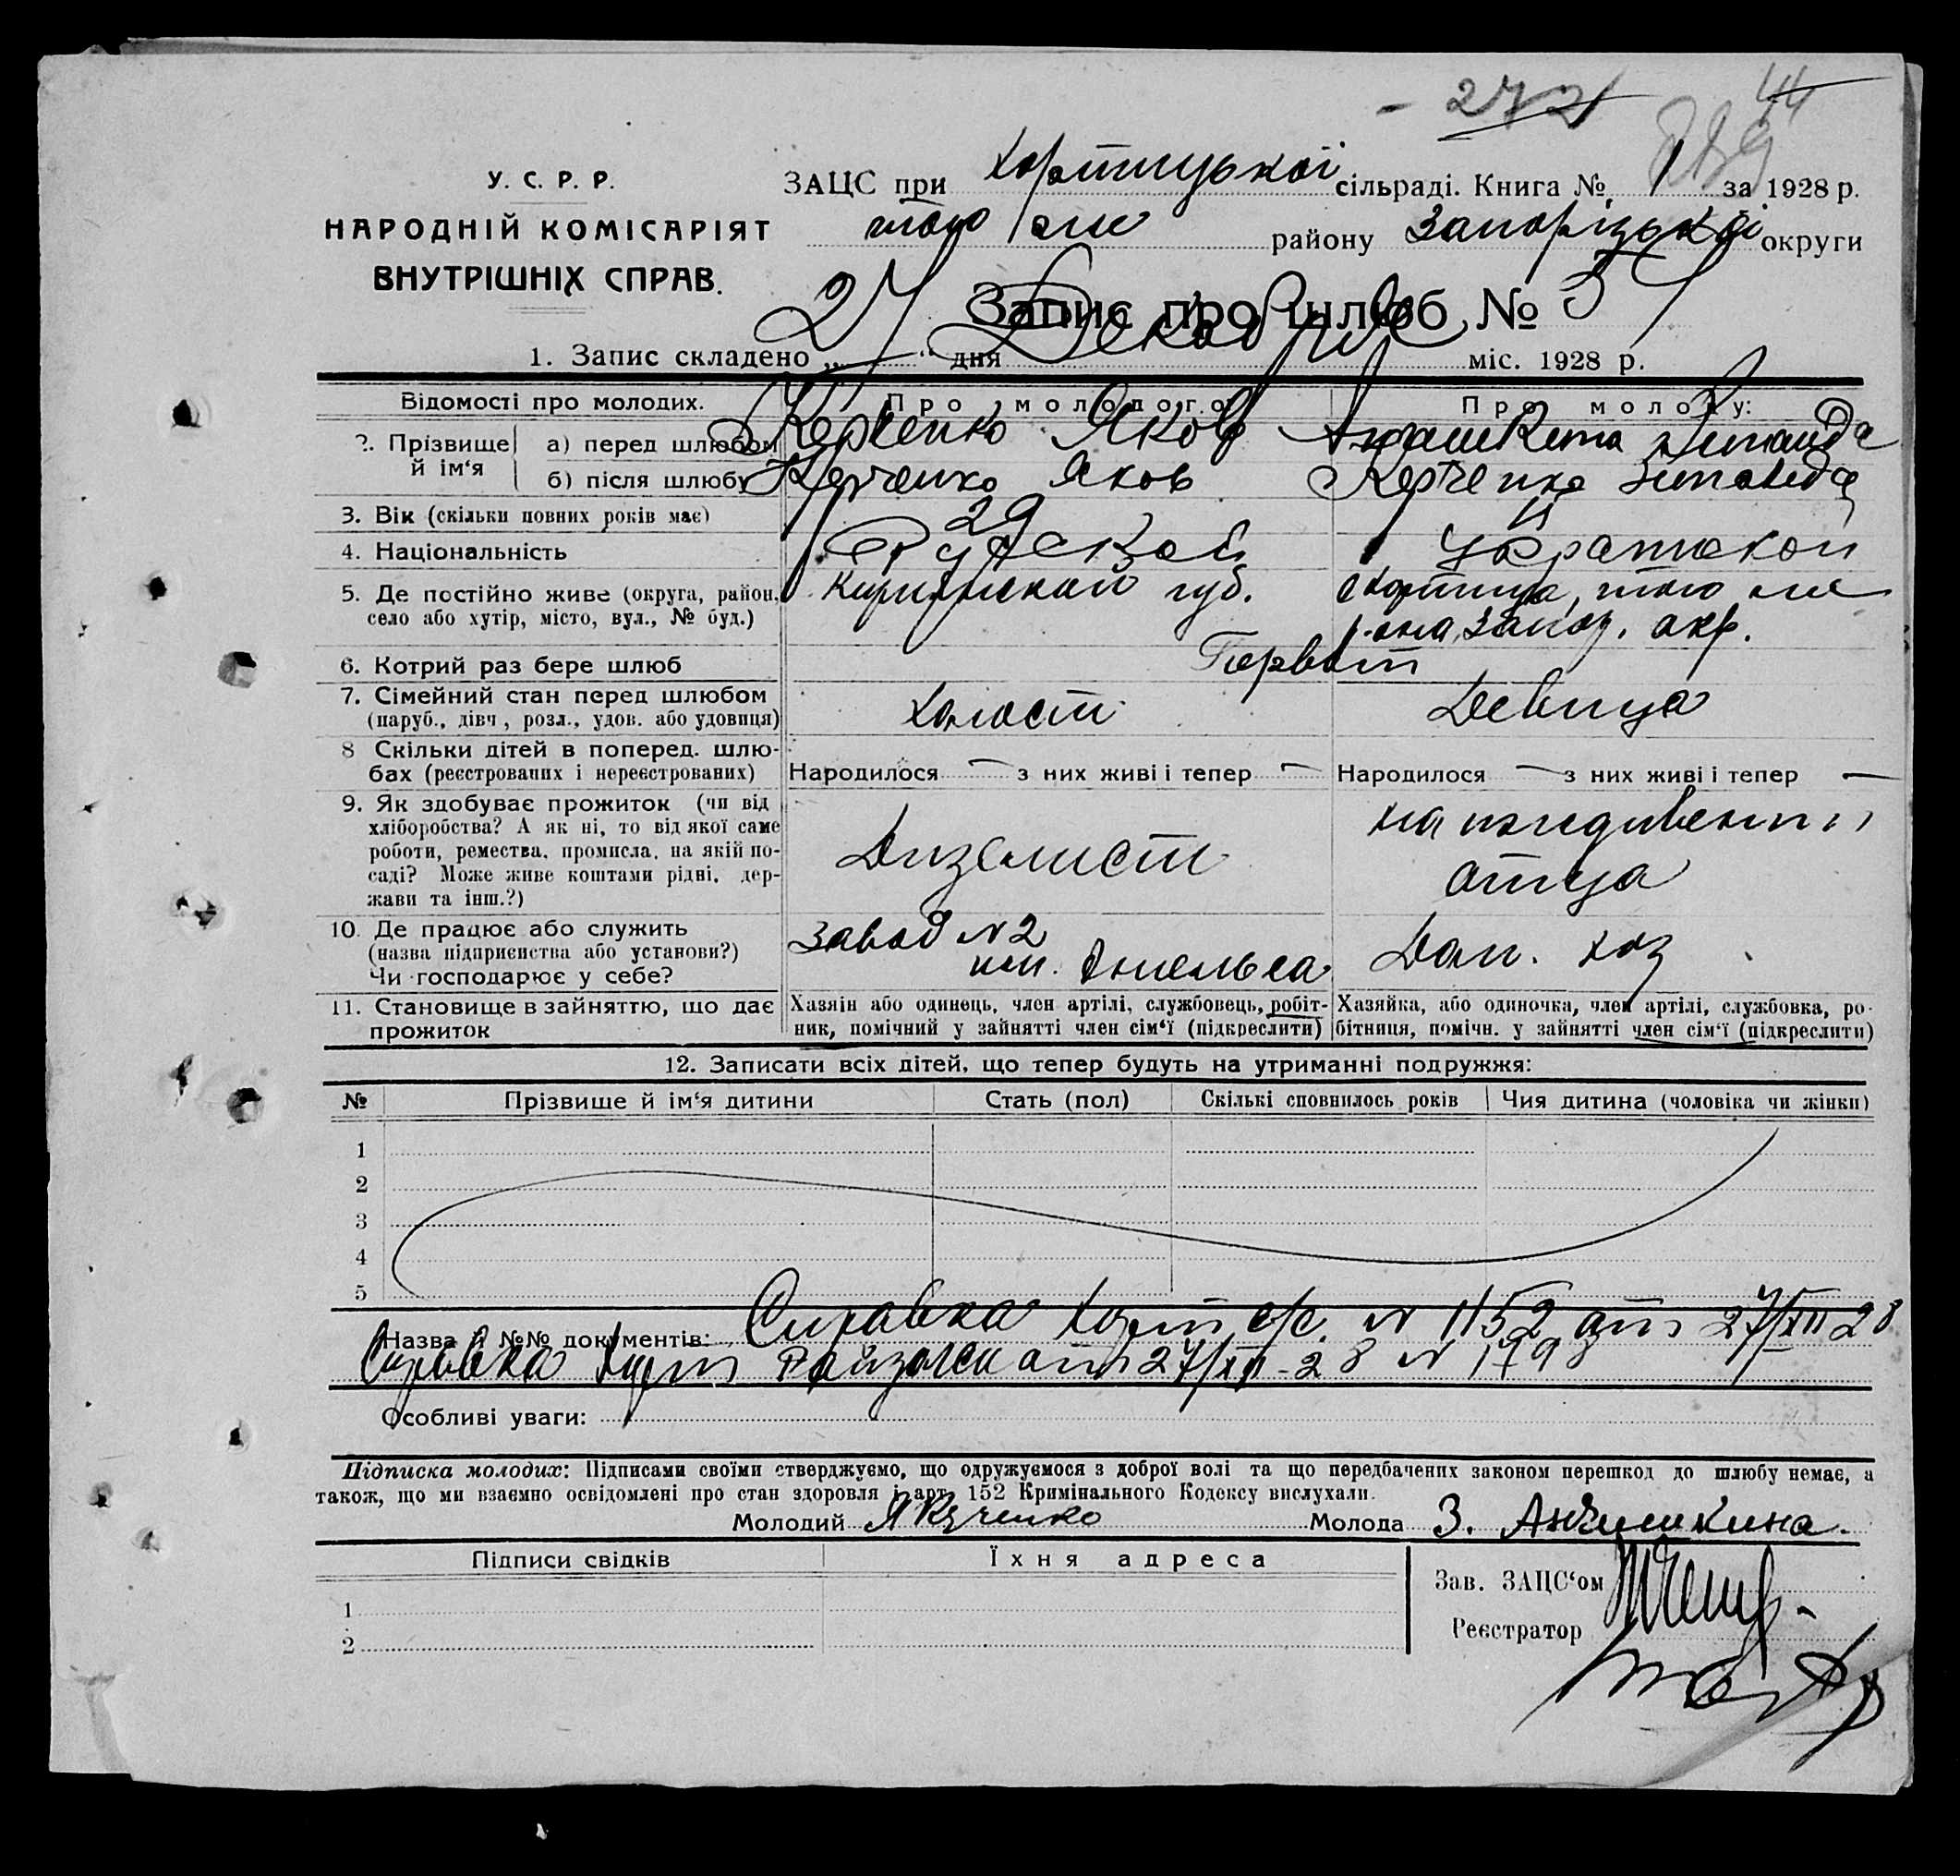 - 272
44
У. С. Р. Р.
НАРОДНІЙ КОМІСАРІЯТ
ВНУТРІШНІХ СПРАВ.
ЗАЦС при Хортицької сільраді. Книга № 1 за 1928 р.
того же району Запорізької округи
Запис про шлюб №
1. Запис складено „ 27 “ дня Декабря міс. 1928 р.
Відомості про молодих. Про молодого: Про молоду:
2. Прізвище й ім‘я а) перед шлюбом Яков Зинаида
б) після шлюбу Яков Зинаида
3. Вік (скільки повних років має) 29
4. Національність Русской
5. Де постійно живе (округа, район, село або хутір, місто, вул., № буд.) губ. Хортица, того же
р-она, Запор. окр.
6. Котрий раз бере шлюб Первый
7. Сімейний стан перед шлюбом (паруб., дівч., розл., удов. або удовиця) Холост Девица
8 Скільки дітей в поперед. шлюбах (реєстрованих і нереєстрованих) Народилося — з них живі і тепер — Народилося — з них живі і тепер —
9. Як здобуває прожиток (чи від
хліборобства? А як ні, то від якої саме
роботи, ремества, промисла, на якій по-
саді? Може живе коштами рідні, дер-
жави та інш.?)
Дизелист
на иждивении
отца
10. Де працює або служить
(назва підприємства або установи?)
Чи господарює у себе?
Завод N 2
им. Энгельса
Дом. хоз
11. Становище в зайняттю, що дає
прожиток
Хазяїн або одинець, член артілі, службовець, робіт-
ник, помічний у зайнятті член сім‘ї (підкреслити)
Хазяйка, або одиночка, член артілі, службовка, ро-
бітниця, помічн. у зайнятті член сім‘ї (підкреслити)
12. Записати всіх дітей, що тепер будуть на утриманні подружжя:
№ Прізвище й ім‘я дитини Стать (пол) Скількі сповнилось років Чия дитина (чоловіка чи жінки)
1
2
3
4
5
Назва й №№ документів: Справка Хорт с/с. N 1152 от 27/XII 28
Справка Хорт от 27/XII-28 N 1798
Особливі уваги:
Підписка молодих: Підписами своїми стверджуємо, що одружуємося з доброї волі та що передбачених законом перешкод до шлюбу немає, а
також, що ми взаємно освідомлені про стан здоровля і арт. 152 Кримінального Кодексу вислухали.
Молодий Молода З.
Підписи свідків Їхня адреса
Зав. ЗАЦС‘ом
Реєстратор
1
2